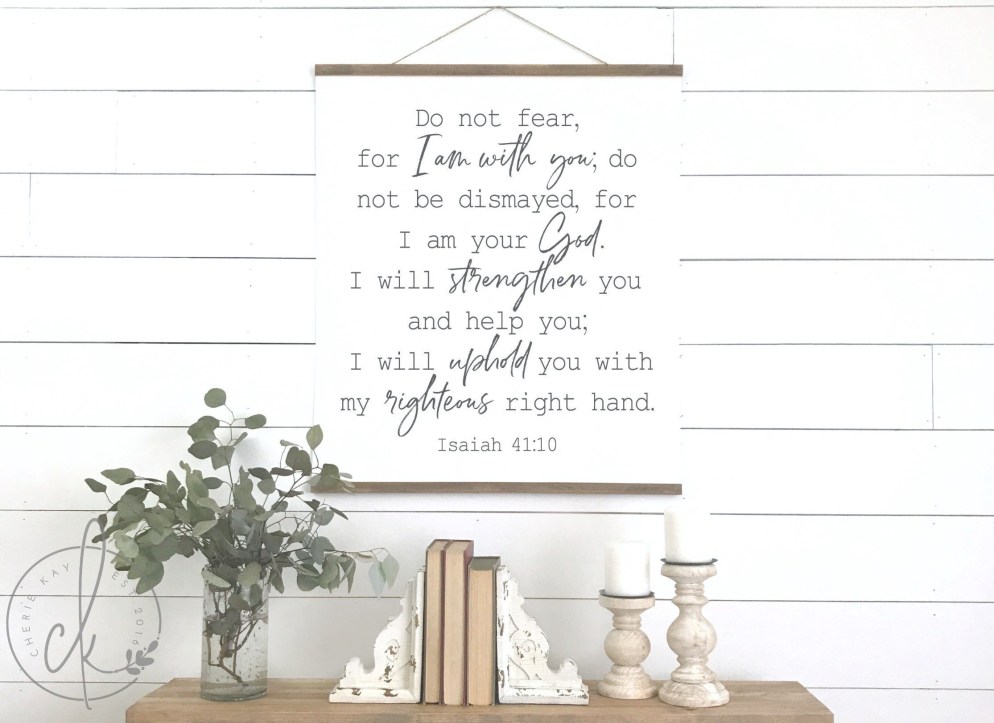 Do not fear,
for I am with you; do
not be dismayed, for
I am your God.
I will strengthen you
and help you;
I will uphold you with
my righteous right hand.
Isaiah 41:10
CHERIE' KAY
EST 2016
ck